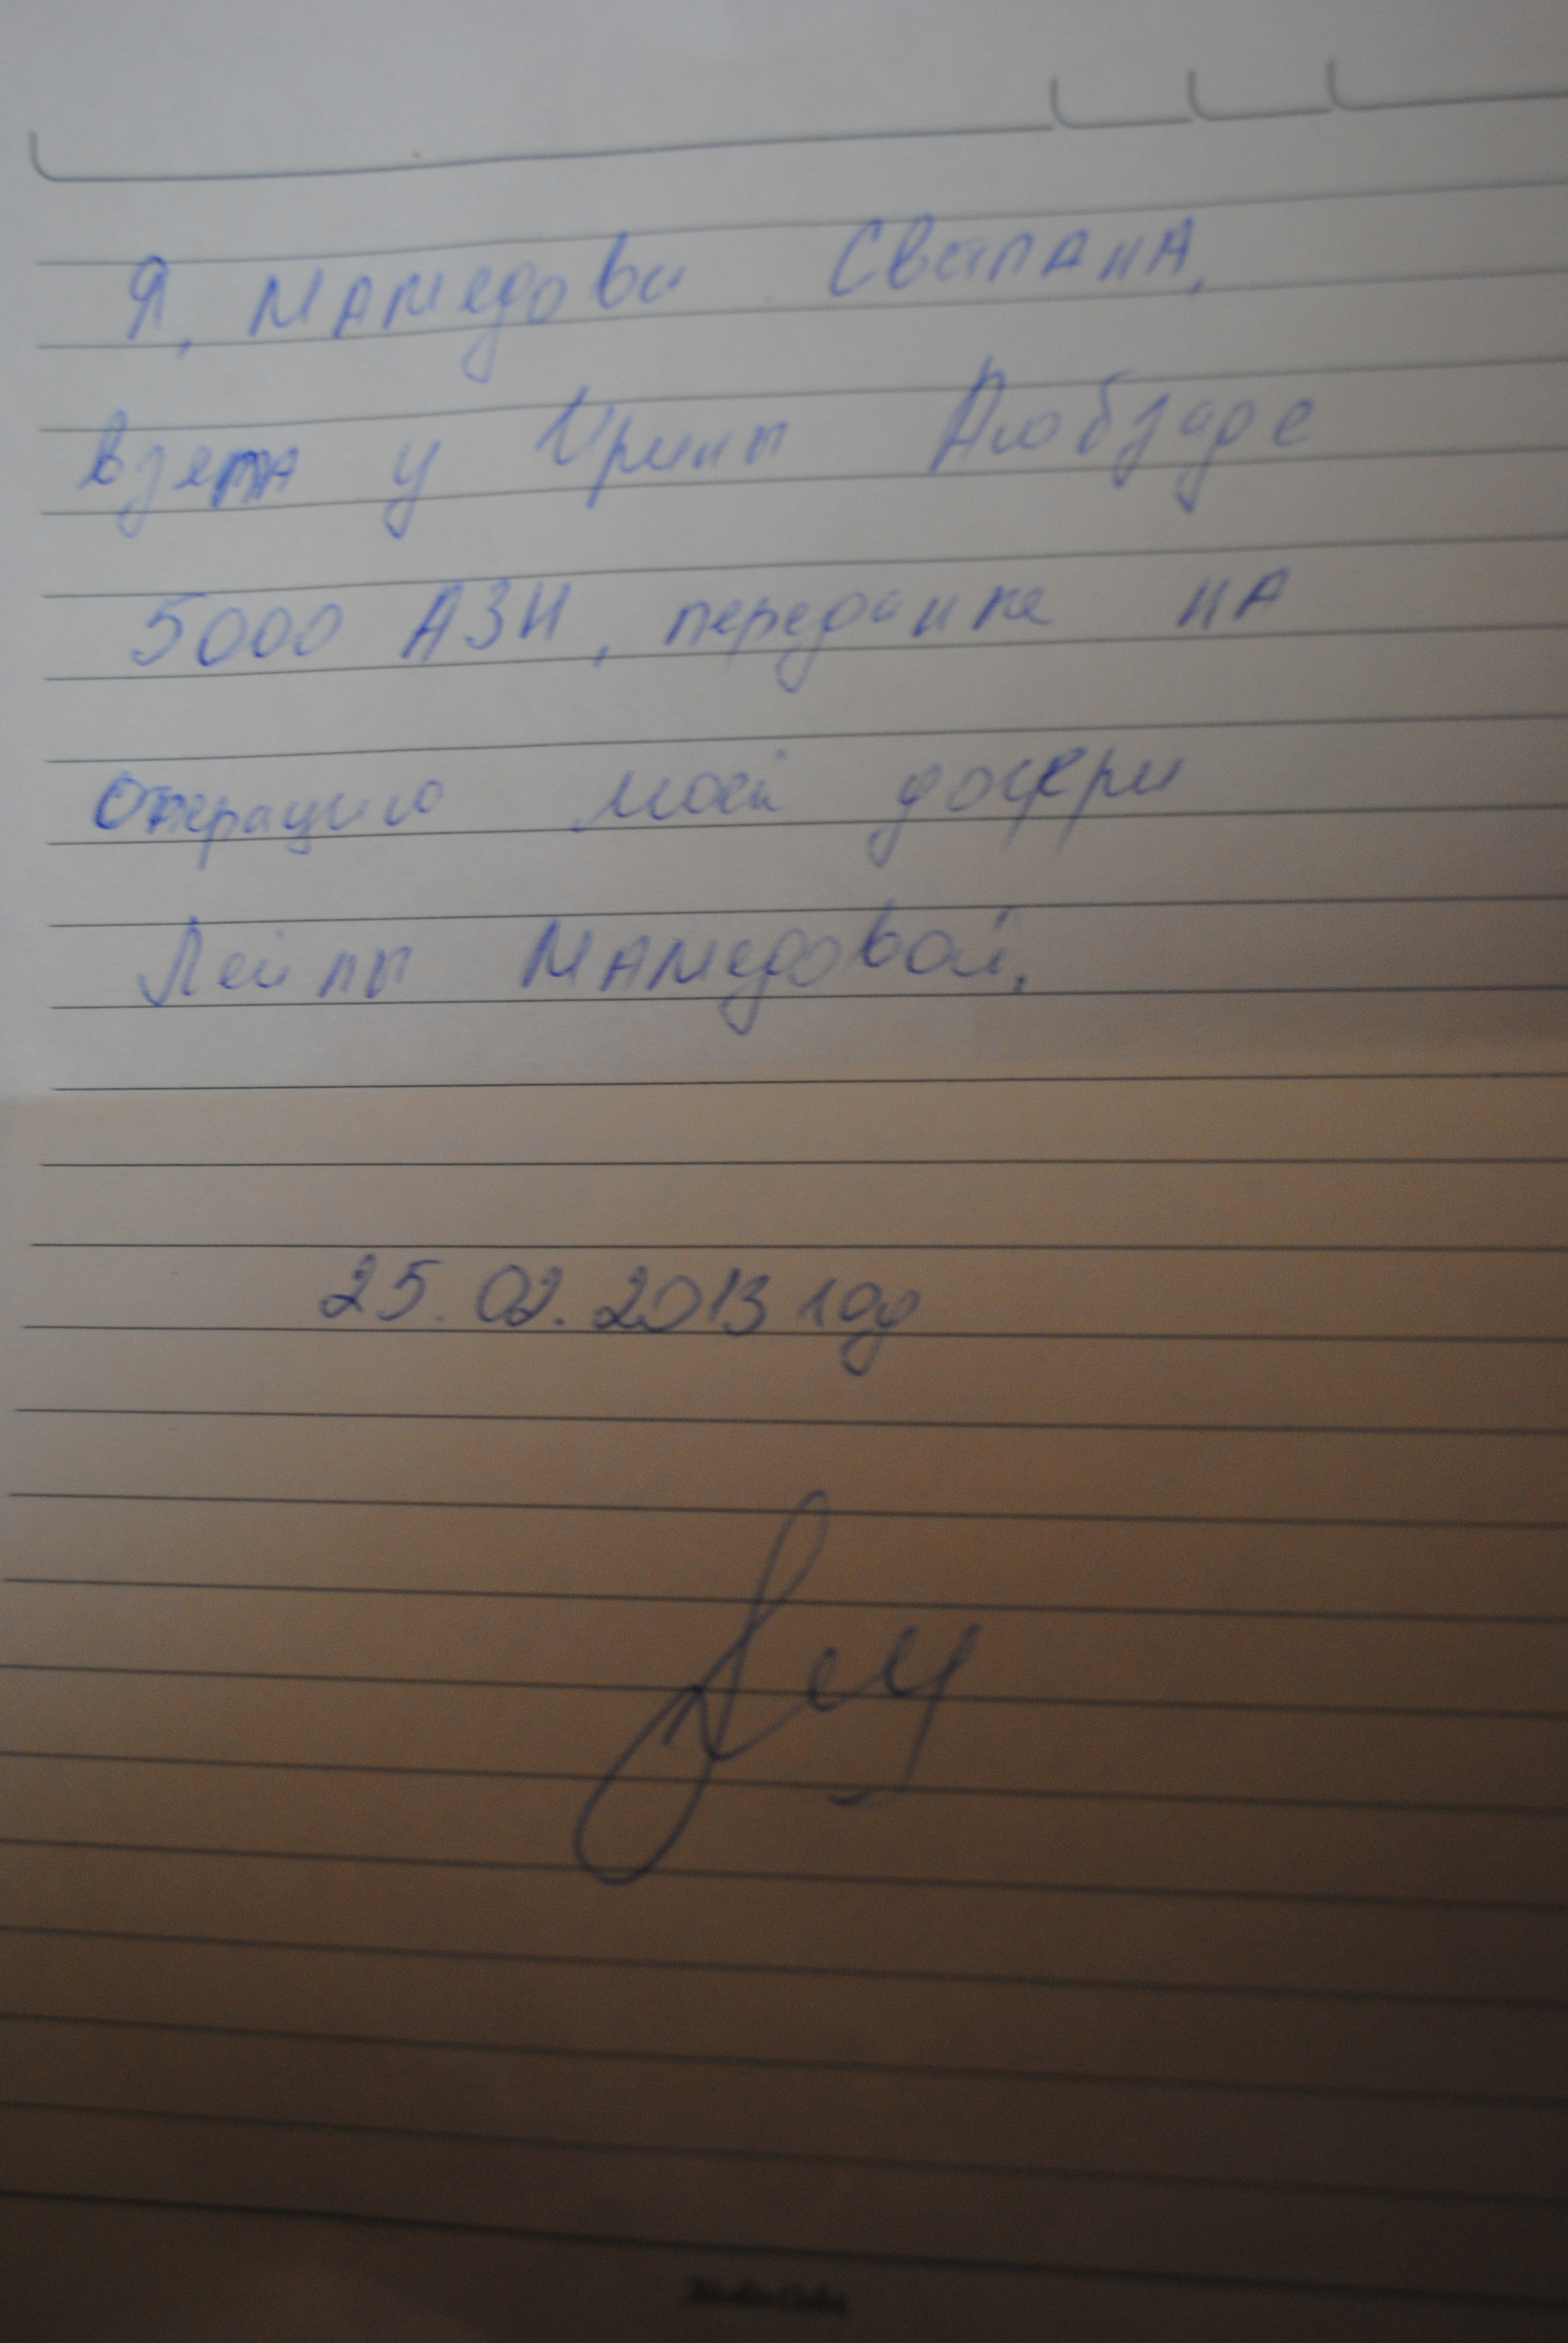 Я, Мамедова Свитлана,
взета у Ирины Алюбзаде
5000 АЗН, передание на
Операцию моей дочери
Лейлы Мамедовой.
25.02.2013 год